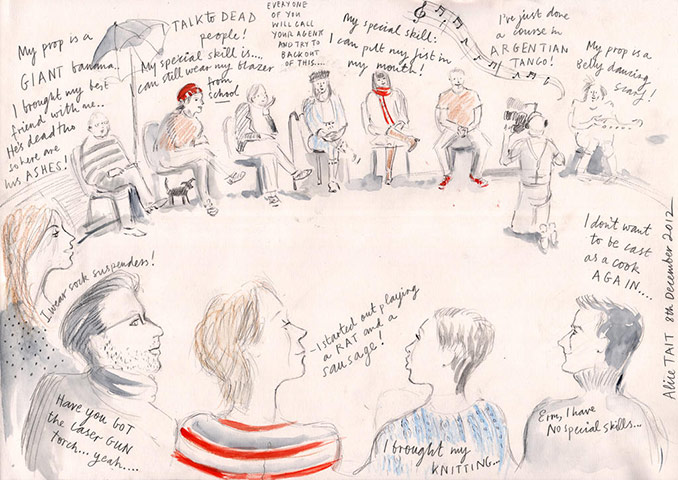 My prop is a
GIANT banana..
I brought my best
friend with me..
He's dead tho
so here are
his ASHES!
TALK to DEAD
people!
My special skill is....
can still wear my blazer
from
school
EVERYONE
OF YOU
WILL CALL
YOUR AGENT
AND TRY TO
BACK OUT
OF THIS....
My special skill:
I can put my fist in
my mouth!
I've just done
a course in
ARGENTIAN
TANGO!
My prop is a
Belly dancing
I wear sock suspenders!
- I started out playing
a RAT and a
sausage!
I don't want
to be cast
as a cook
AGAIN....
Have you GOT
the laser GUN
torch... yeah....
I brought my
KNITTING...
Erm, I have
NO special skills...
Alice TAIT 8th December 2012